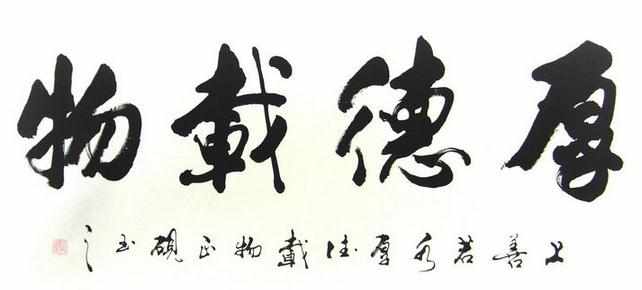 厚德載物
上善若水厚德載物正硯玉